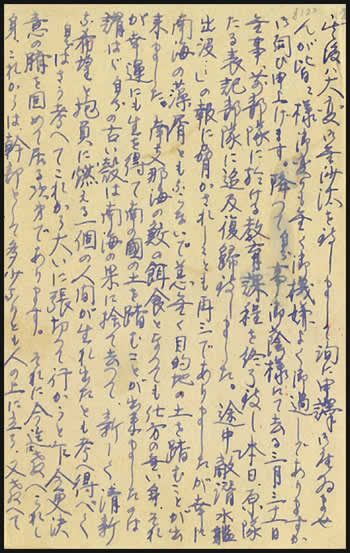 其後は大変御無沙汰を致しまして洵に申譯御座ゐませ
んが皆々様御変りも無く御機嫌よく御過しでありますか
御伺ひ申上げます。降つて自分事御蔭様にて去る三月三十一日
無事前部隊に於ける教育課程を終了致し本日原隊
たる表記部隊に追及復歸致しました。途中敵潜水艦
出没しの報に脅かされしことも再三でありましたが幸に
南海の藻屑ともならないで恙無く目的地の土を踏むことが出
来ました。南支那海の鱶の餌食となつても仕方の無い身、それ
が幸運にも生を得て南の國の土を踏むことが出来ましたのは
謂はば自分の古い殻は南海の果に捨て去つて新しく清新
な希望と抱負に燃える一個の人間が生れ出たとも考へ得べく
自分はさう考へてこれから大いに張切つて行かうと只今更決
意の臍を固めて居る次第であります。それに今迄教へられし
身、これからは幹部として多少なりとも人の上に立ち、又教へて